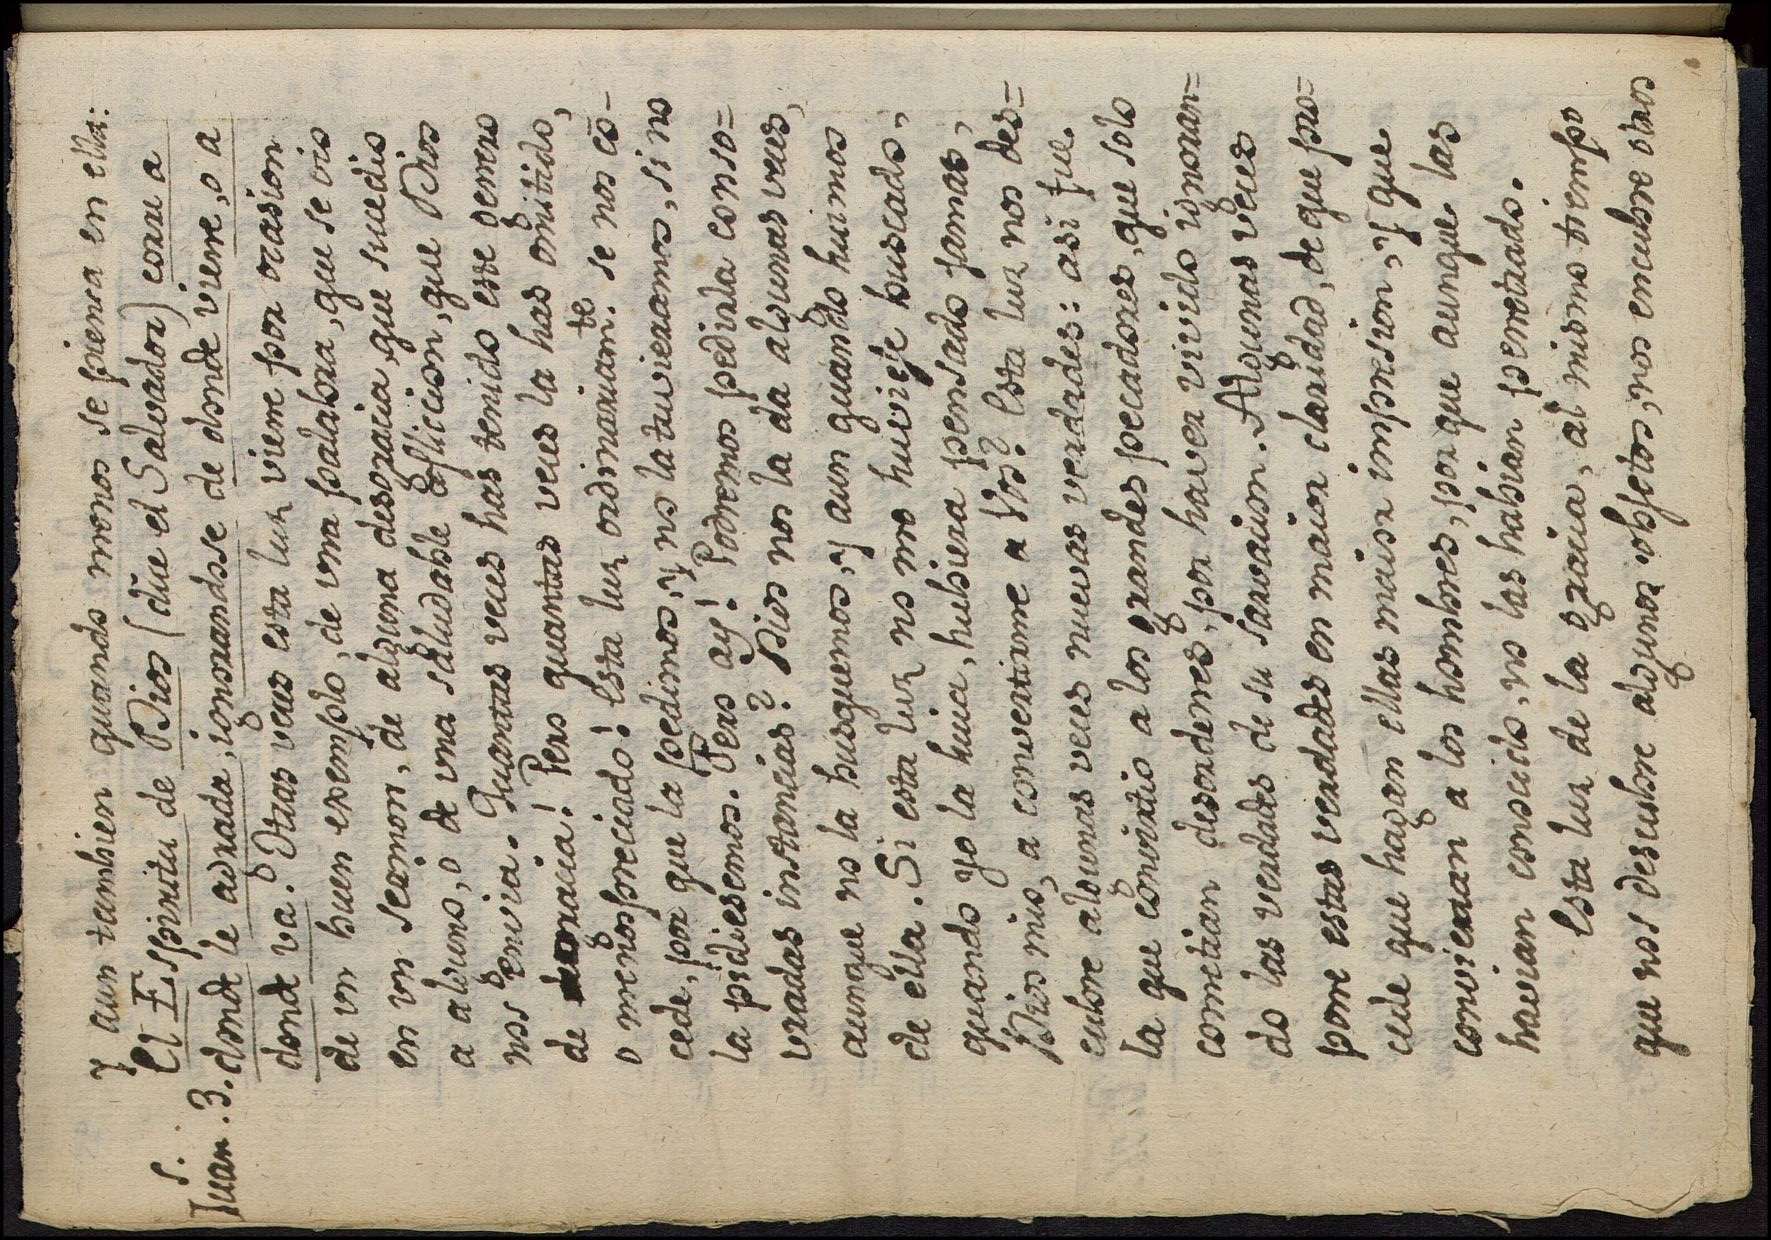 y aun tambien quando menos se piensa en ella:
El Espiritu de Dios (dice el Salvador) corre a
S. Juan. 3. donde le agrada, ignorandose de donde viene, o a
donde va. Otras veces esta luz viene por ocasion
de un buen exemplo, de una palabra, que se oió
en un sermon, de alguna desgracia, que sucedió
a alguno, o de una saludable afliccion, que Dios
nos envia. Quantas veces has tenido este genero
de gracia! Pero quantas veces la has omitido,
o menospreciado! Esta luz ordinariam.te se nos cō-
cede, por que la pedimos, y no la tuvieramos, si no
la pidiesemos. Pero ay! Podremos pedirla con so=
bradas instancias? Dios nos la da algunas veces,
aunque no la busquemos, y aun quando huimos
de ella. Si esta luz no me huviese buscado,
quando yo la huia, hubiera pensado jamas,
Dios mio, a convertirme a Vos? Esta luz nos des=
cubre algunas veces nuevas verdades: asi fue
la que convirtio a los grandes pecadores, que solo
cometian desordenes, por haver vivido ignoran=
do las verdades de su salvacion. Algunas veces
pone estas verdades en maior claridad, de que pro=
cede que hagan ellas maior impresion, y que
conviertan a los hombres, por que aunque las
havian conocido, no las habian penetrado.
Esta luz de la gracia, al mismo tiempo
que nos descubre algunos objetos, nos encubre otros